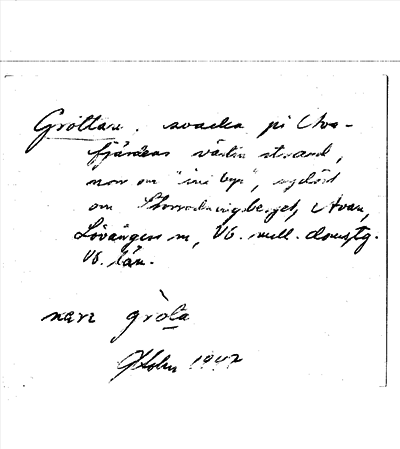 Gröttan. svacka på Ava-
fjärdens västra strand,
norr om "ini byn", sydöst
om Storrödningsberget, Avan,
Lövångers sn, Vb. mell. domstg.
Vb. län.
narz gròta
GHolm 1947